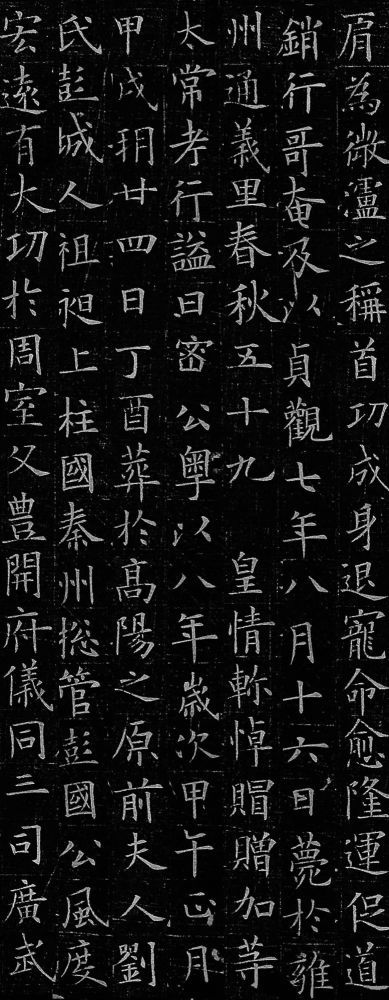 肩為微瀘之稱首功成身退寵命愈隆運促道
銷行哥奄及以貞觀七年八月十六日薨於雍
州通義里春秋五十九 皇情軫悼賵贈加等
太常考行謚曰密公粤以八年歲次甲午正月
甲戌朔廿四日丁酉葬於高陽之原前夫人劉
氏彭城人祖昶上柱國秦州揔管彭國公風度
宏遠有大功於周室父豊開府儀同三司廣武